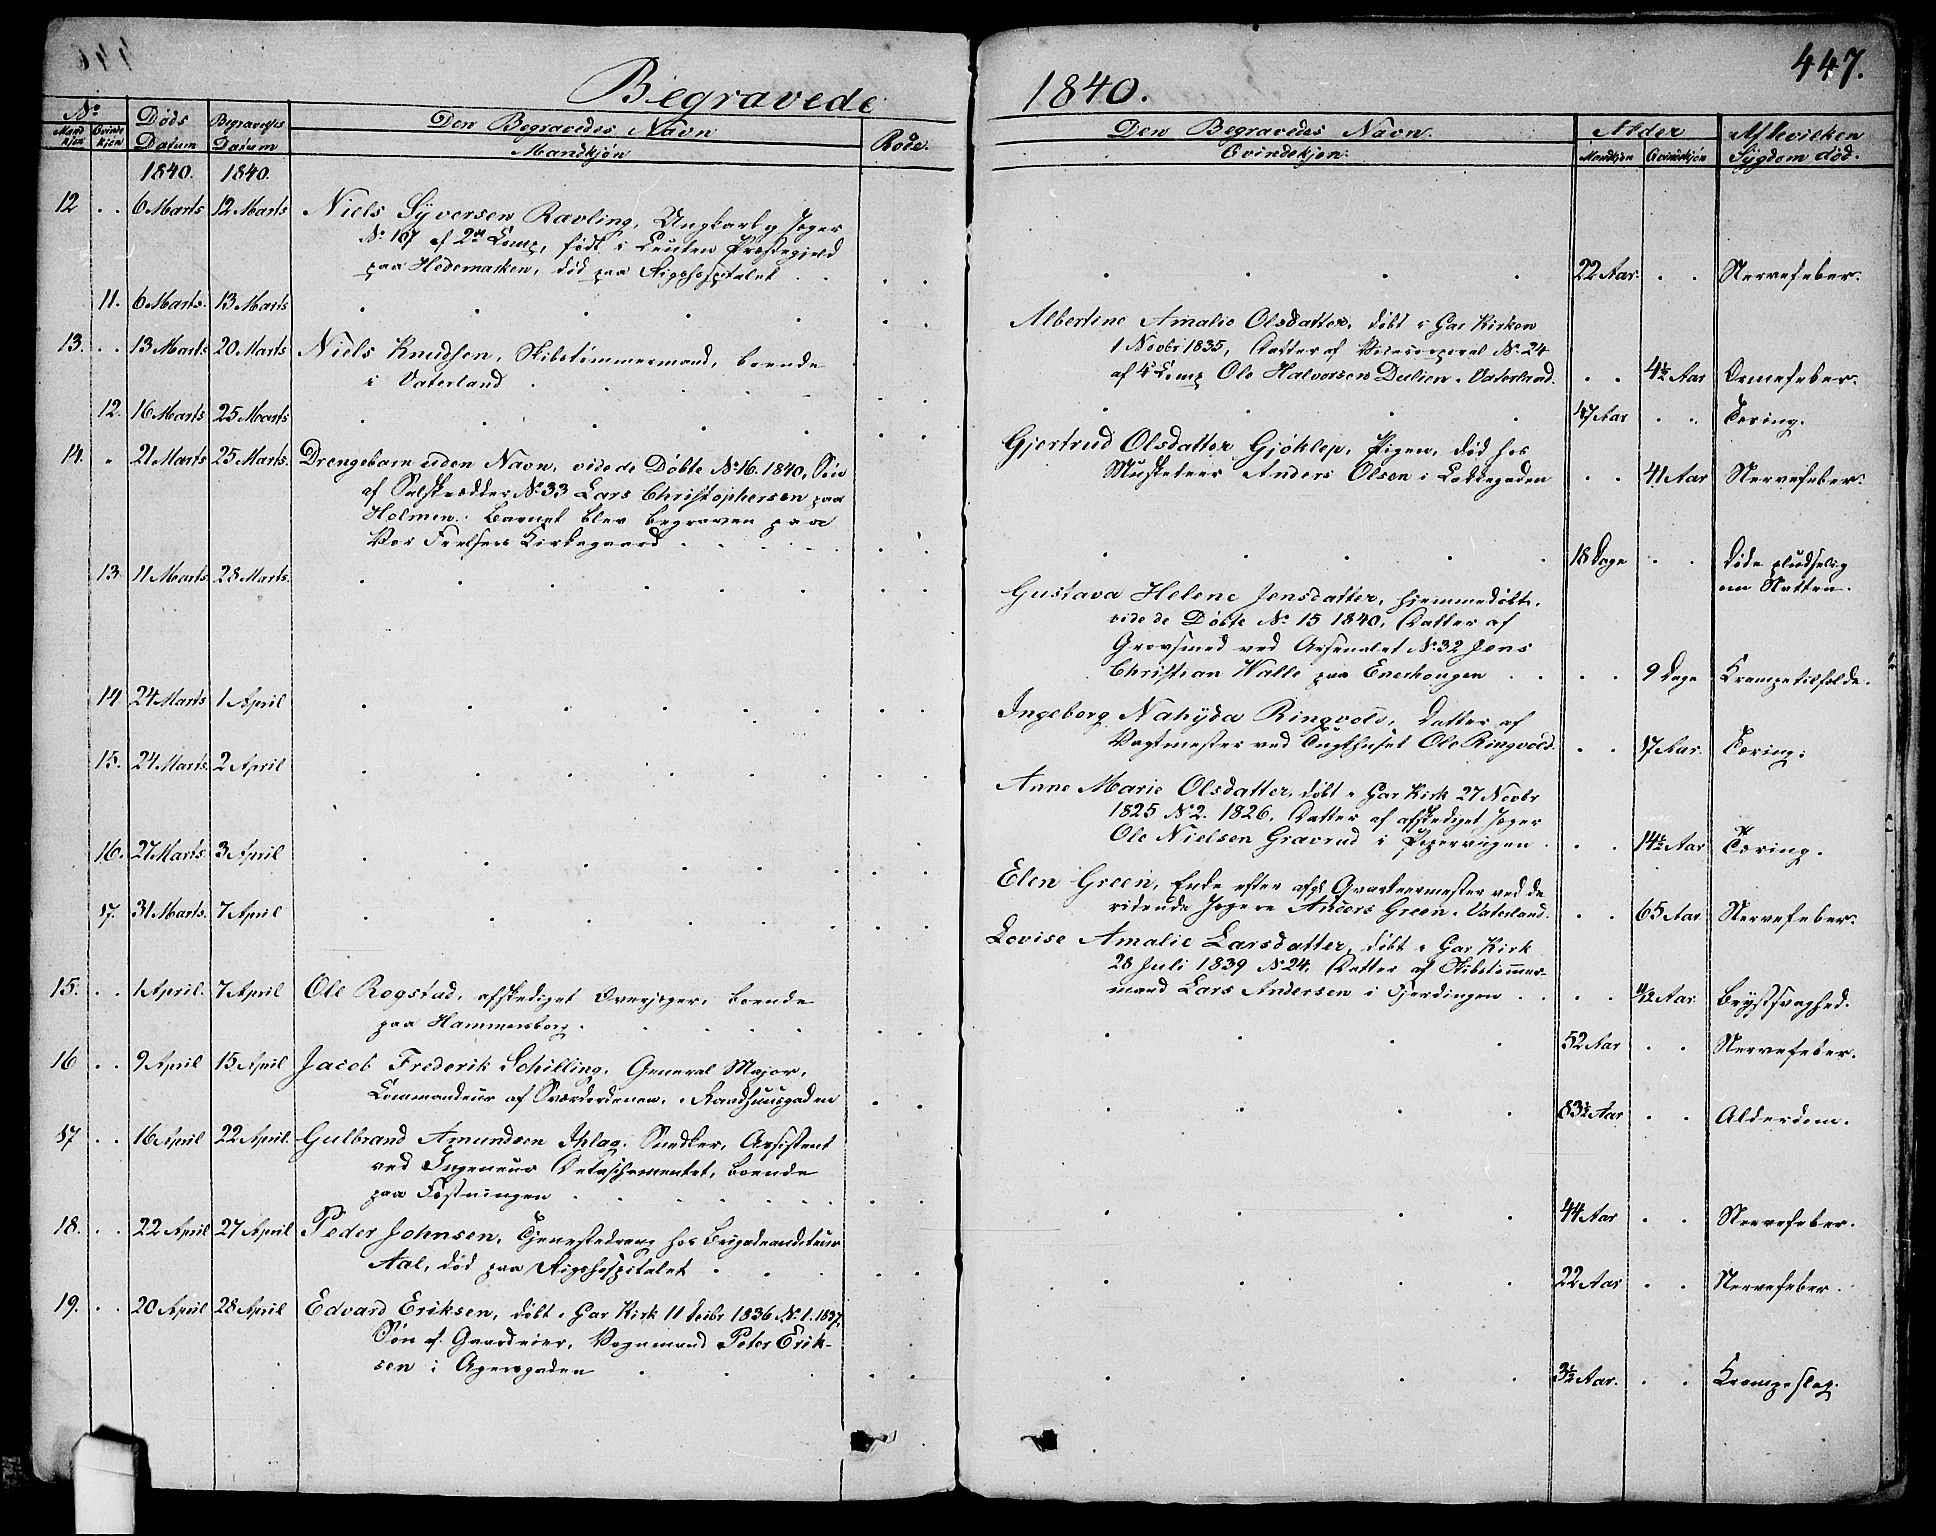 Begravede 1840. 447.
No Døds Begravelses Den Begravedes Navn Rode. Den Begravedes Navn. Alder Af hvilken
Mandkjøn Qvindekjøn Datum Datum Mandkjøn Qvindekjøn. Mandkjøn Qvindekjøn Sygdom død.
1840. 1840.
12 . . 6 Marts 12 Marts Niels Syversen Ravling, Ungkarl og Jæger
No 107 af 2det Comp, født i Leuten Præstegjeld
paa Hedemarken, død paa Rigshospitalet . . 22 Aar. . . Nervefeber.
11. 6 Marts. 13 Marts Albertine Amalie Olsdatter, døbt i Gar Kirken
1 Novbr 1835, Datter af Vicecorporal No 24
af 4de Comp Ole Halvorsen Dulien i Vaterland. . . 4½ Aar Ormefeber.
13. . . 13 Marts 20 Marts Niels Knudsen, Skibstømmermand, boende
i Vaterland . . 47 Aar . . Tæring.
12. 16 Marts 25 Marts Gjertrud Olsdatter Gjøklep, Pigen, død hos
Musketeer Anders Olsen i Løkkegaden . . 41 Aar Nervefeber.
14. . 21 Marts 25 Marts. Drengebarn uden Navn, vide de Døbte No 16. 1840, Søn
af No 33 Lars Christophersen paa
Holmen. Barnet blev begraven paa
Vor Frelsers Kirkegaard . . 18 Dage . . Døde pludselig
om Natten.
13. 11 Marts 28 Marts. Gustava Helene Jensdatter, hjemmedøbt,
vide de Døbte No 15 1840, Datter af
Grovsmed ved Arsenalet No 32 Jens
Christian Walle paa Enerhougen . . 9 Dage Krampetilfælde.
14 24 Marts 1 April Ingeborg Nahyda Ringvold, Datter af
Vagtmester ved Tugthuset Ole Ringvold. . . 17 Aar. Tæring.
15. 24 Marts. 2 April Anne Marie Olsdatter, døbt i Gar Kirk 27 Novbr
1825 No 2. 1826, Datter af afskediget Jæger
Ole Nielsen Gravrud i Pipervigen . . 14½ Aar Tæring.
16. 27 Marts 3 April Elen Green, Enke efter afg. Qvarteermester ved de
ridende Jægere Anders Green i Vaterland. . . 65 Aar Nervefeber.
17. 31 Marts. 7 April Lovise Amalie Larsdatter, døbt i Gar Kirk
28 Juli 1839 No 24, Datter af Skibstømmer-
mand Lars Andersen i Fjerdingen . . Aar. Brystsvaghed.
15. . . 1 April. 7 April Ole Rogstad, afskediget Overjæger, boende
paa Hammersborg . . 52 Aar . . Nervefeber.
16 . . 9 April 15 April Jacob Frederik Schilling, General Major,
Commandeur af Sværdordenen, i Raadhuusgaden . . 83½ Aar . . Alderdom.
17 . . 16 April 22 April. Gulbrand Amundsen Snedker, Assistent
ved Ingenieur Detaschementet, boende
paa Fæstningen . . 44 Aar . . Nervefeber.
18. . . 22 April 27 April Peder Johnsen, Tjenestedreng hos Brigadeauditeur
Aal, død paa Rigshospitalet . . 22 Aar . . Nervefeber.
19. . . 20 April 28 April Edvard Eriksen, døbt i Gar Kirk 11 Decbr 1836 No 1. 1837,
Søn af Gaardeier, Vognmand Peter Erik-
sen i Agersgaden . . 3½ Aar. . . Krampeslag.